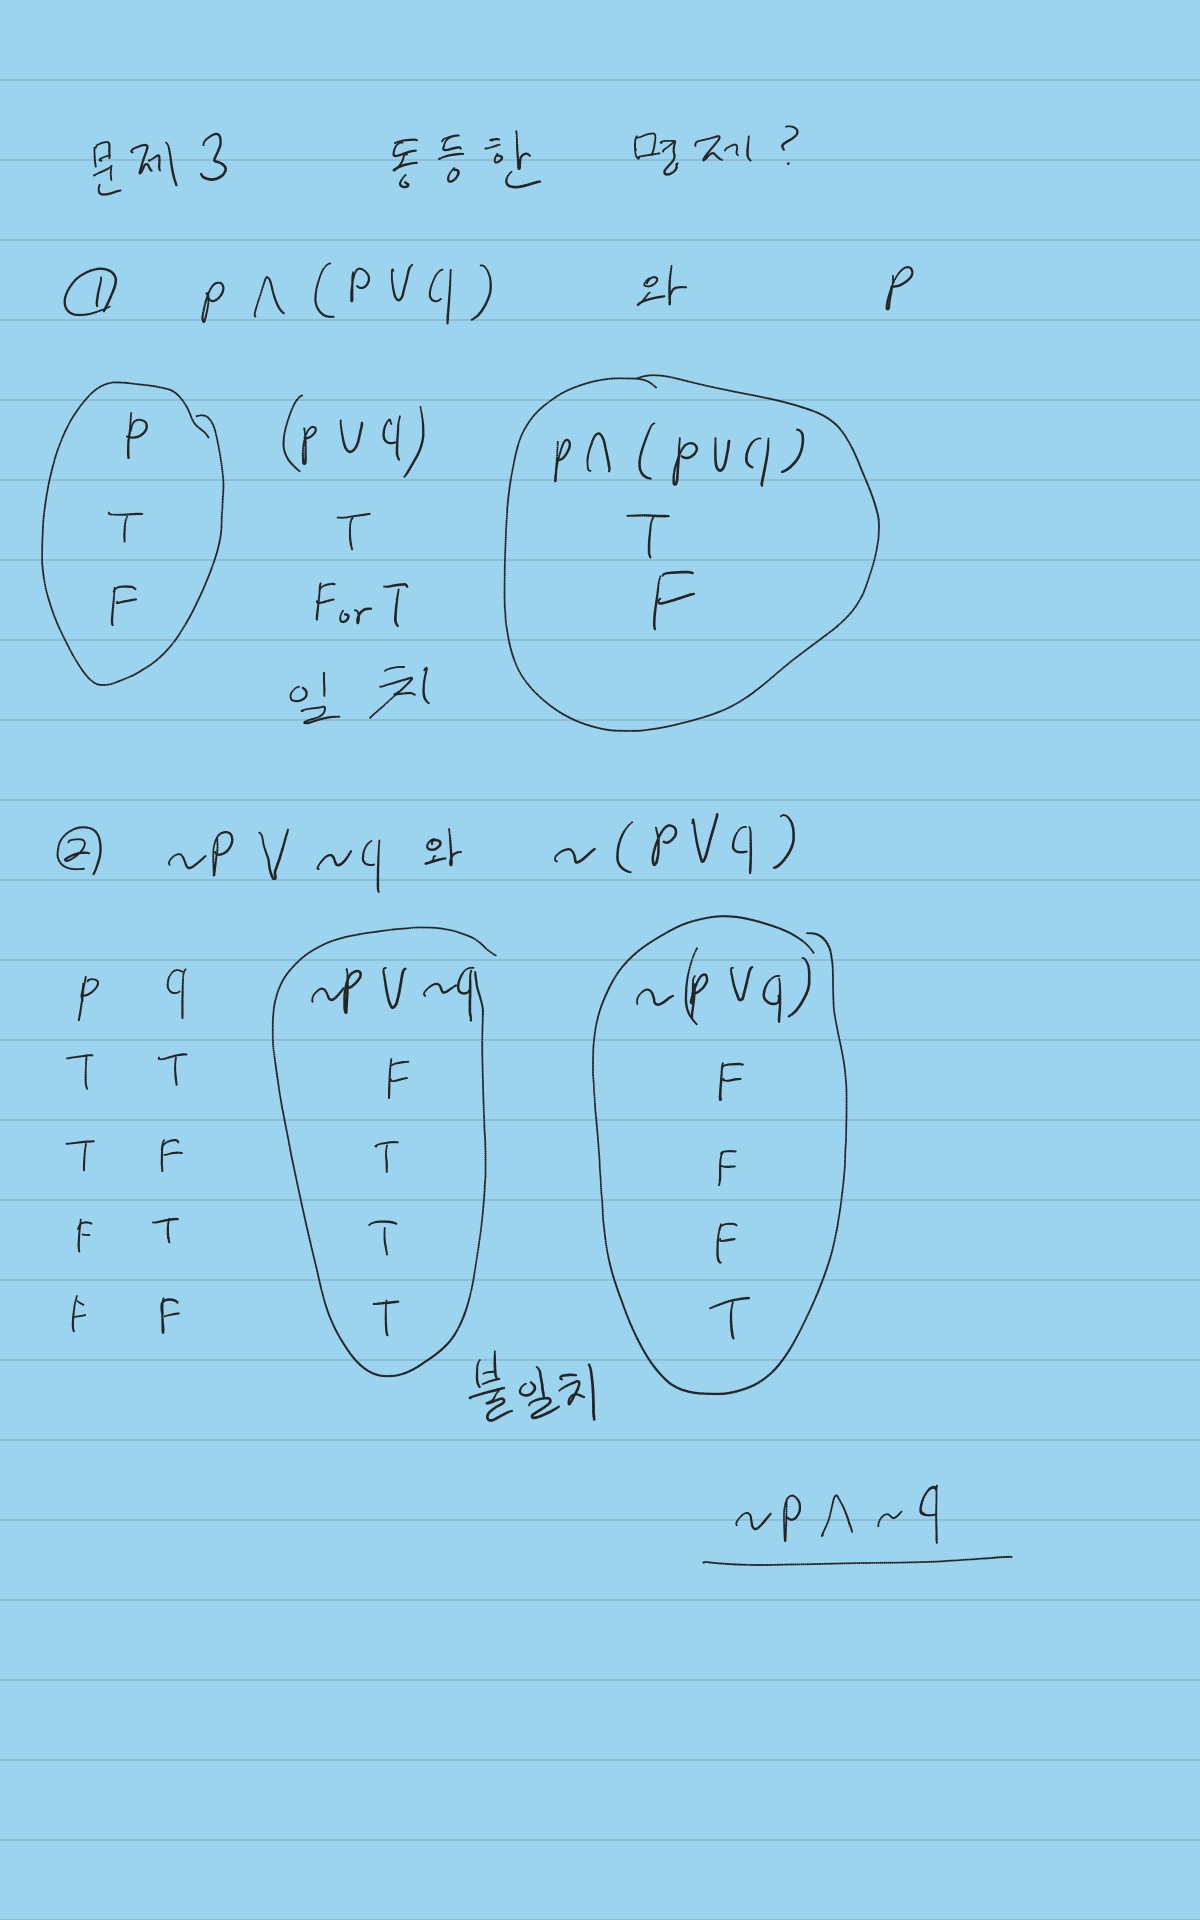 문제3 동등한 명제?
① p ∧ (p ∨ q) 와 p
p (p ∨ q) p ∧ (p ∨ q)
T T T
F F or T F
일치
② ~p ∨ ~q 와 ~(p ∨ q)
p q ~p ∨ ~q ~(p ∨ q)
T T F F
T F T F
F T T F
F F T T
불일치
~p ∧ ~q